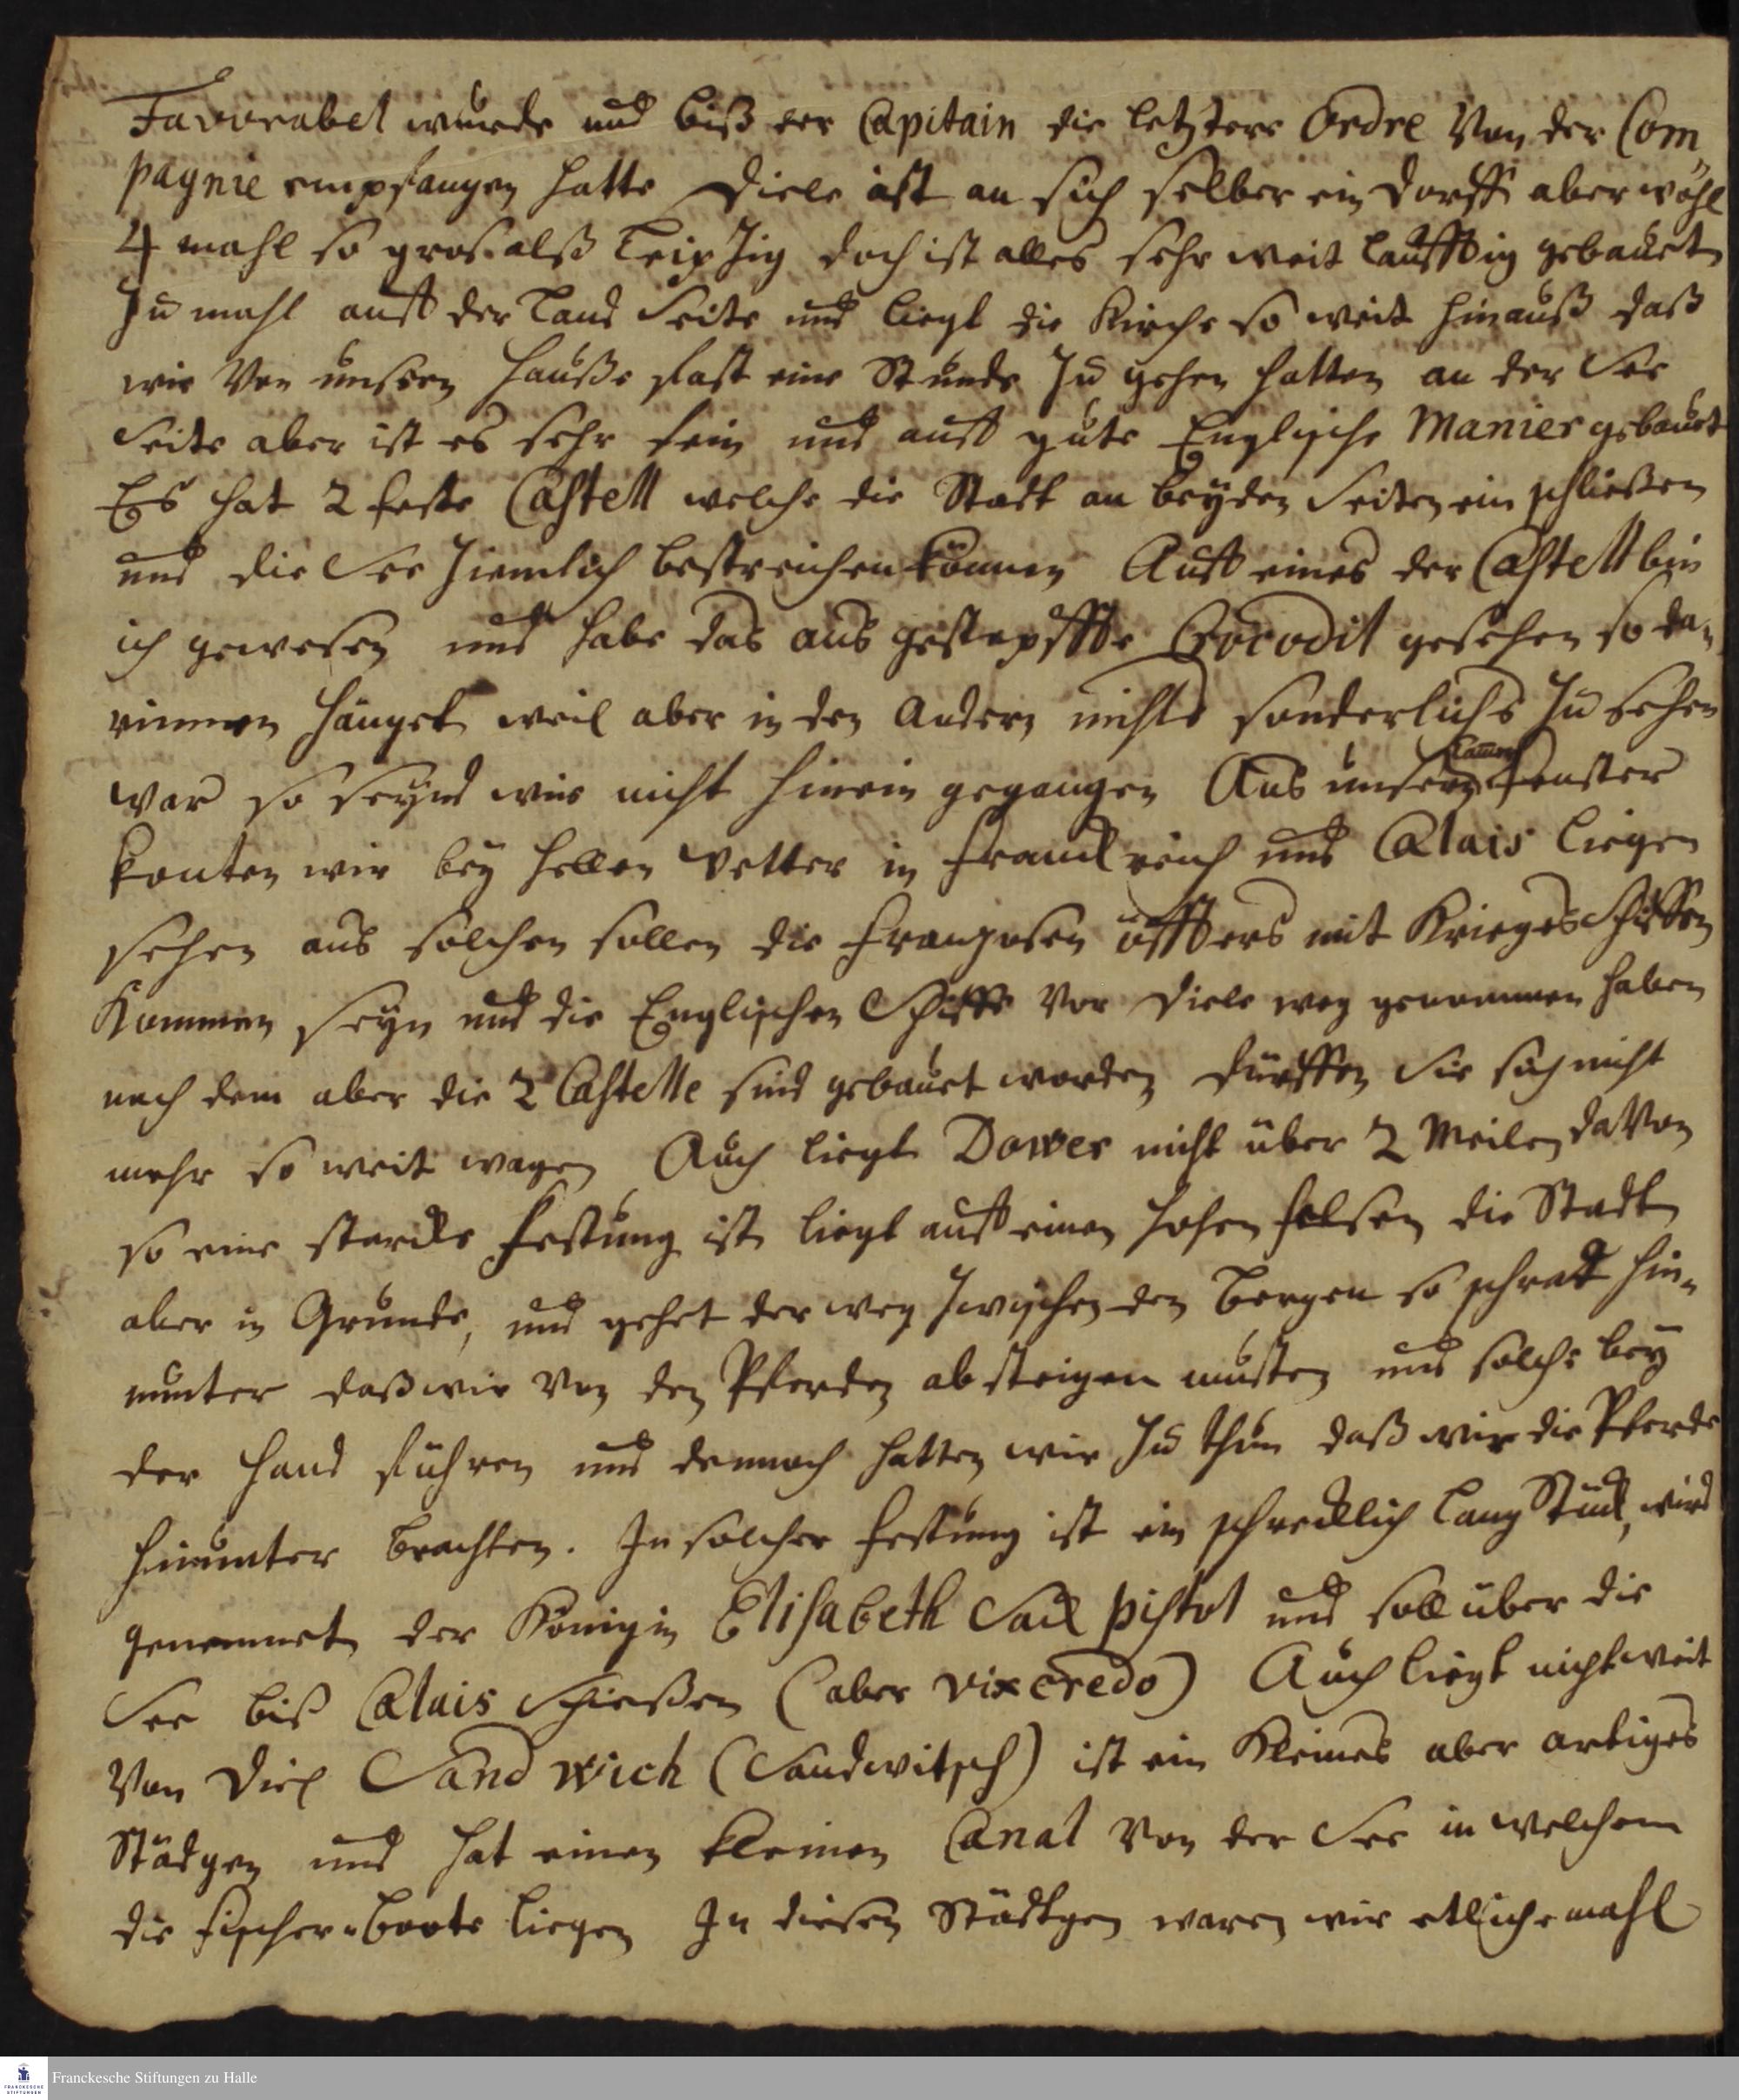 Favorabel wurde und biß der Capitain die letztere Ordre Von der Com„
pagnie empfangen hatte Diele ist an sich selber ein Dorff aber wohl
4 mahl so gros. alß Leipzig doch ist alles sehr weit laufftig gebauet
Zu mahl auff der Land Seite und liegt die Kirche so weit hinauß daß
wir Von unsern Hauße fast eine Stunde zu gehen hatten an der See
Seite aber ist es sehr fein und auff gute Englische Manier gebauet
Es hat 2 feste Castell welche die Stadt an beyden Seiten ein schließen
und die See ziemlich bestreichen können Auff eines der Castell bin
ich gewesen und habe das aus gestopffte Crocodil gesehen so da„
rinnen hänget weil aber in den Andern nichts sonderlichs zu sehen
war so seynd wir nicht hinein gegangen Aus unsern Cammer Fenster
konten wir bey hellen Wetter in Franckreich und Calais liegen
sehen aus solchen sollen die Franzosen öffters mit Krieges Schiffen
Kommen seyn und die Englischen Schiffe Vor Diele weg genommen haben
nach dem aber die 2 Castelle sind gebauet worden dürffen Sie sich nicht
mehr so weit wagen Auch liegt Dower nicht über 2 Meilen daVon
so eine starcke Festung ist liegt auff einen hohen Felsen die Stadt
aber in Grunde, und gehet der weg zwischen den Bergen so schrat hin„
nunter daß wir Von den Pferden absteigen musten und solche bey
der Hand führen und dennoch hatten wir zu thun daß wir die Pferde
hinunter brachten. In solcher Festung ist ein schrecklich lang Stück, wird
genennet der Königin Elisabeth Sack pistol und soll über die
See biß Calais schießen (aber vix credo) Auch liegt nicht weit
Von Diel Sandwich (Sandwitsch) ist ein Kleines aber artiges
Städgen und hat einen kleinen Canal Von der See in welchem
die Fischer=boote liegen In diesen Städtgen waren wir etliche mahl
Franckesche Stiftungen zu Halle
FRANCKESCHE
STIFTUNGEN